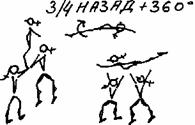 3/4 НАЗАД + 360°